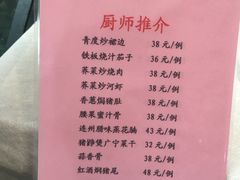 厨师推介
青度炒裙边 38元/例
铁板烧汁茄子 36元/例
荞菜炒烧肉 38元/例
荞菜炒河虾 38元/例
香葱焗猪肚 38元/例
腰果蜜汁骨 38元/例
连州腊味蒸花腩 43元/例
猪踭煲广宁菜干 32元/例
蒜香骨 38元/例
红酒焖猪尾 48元/例